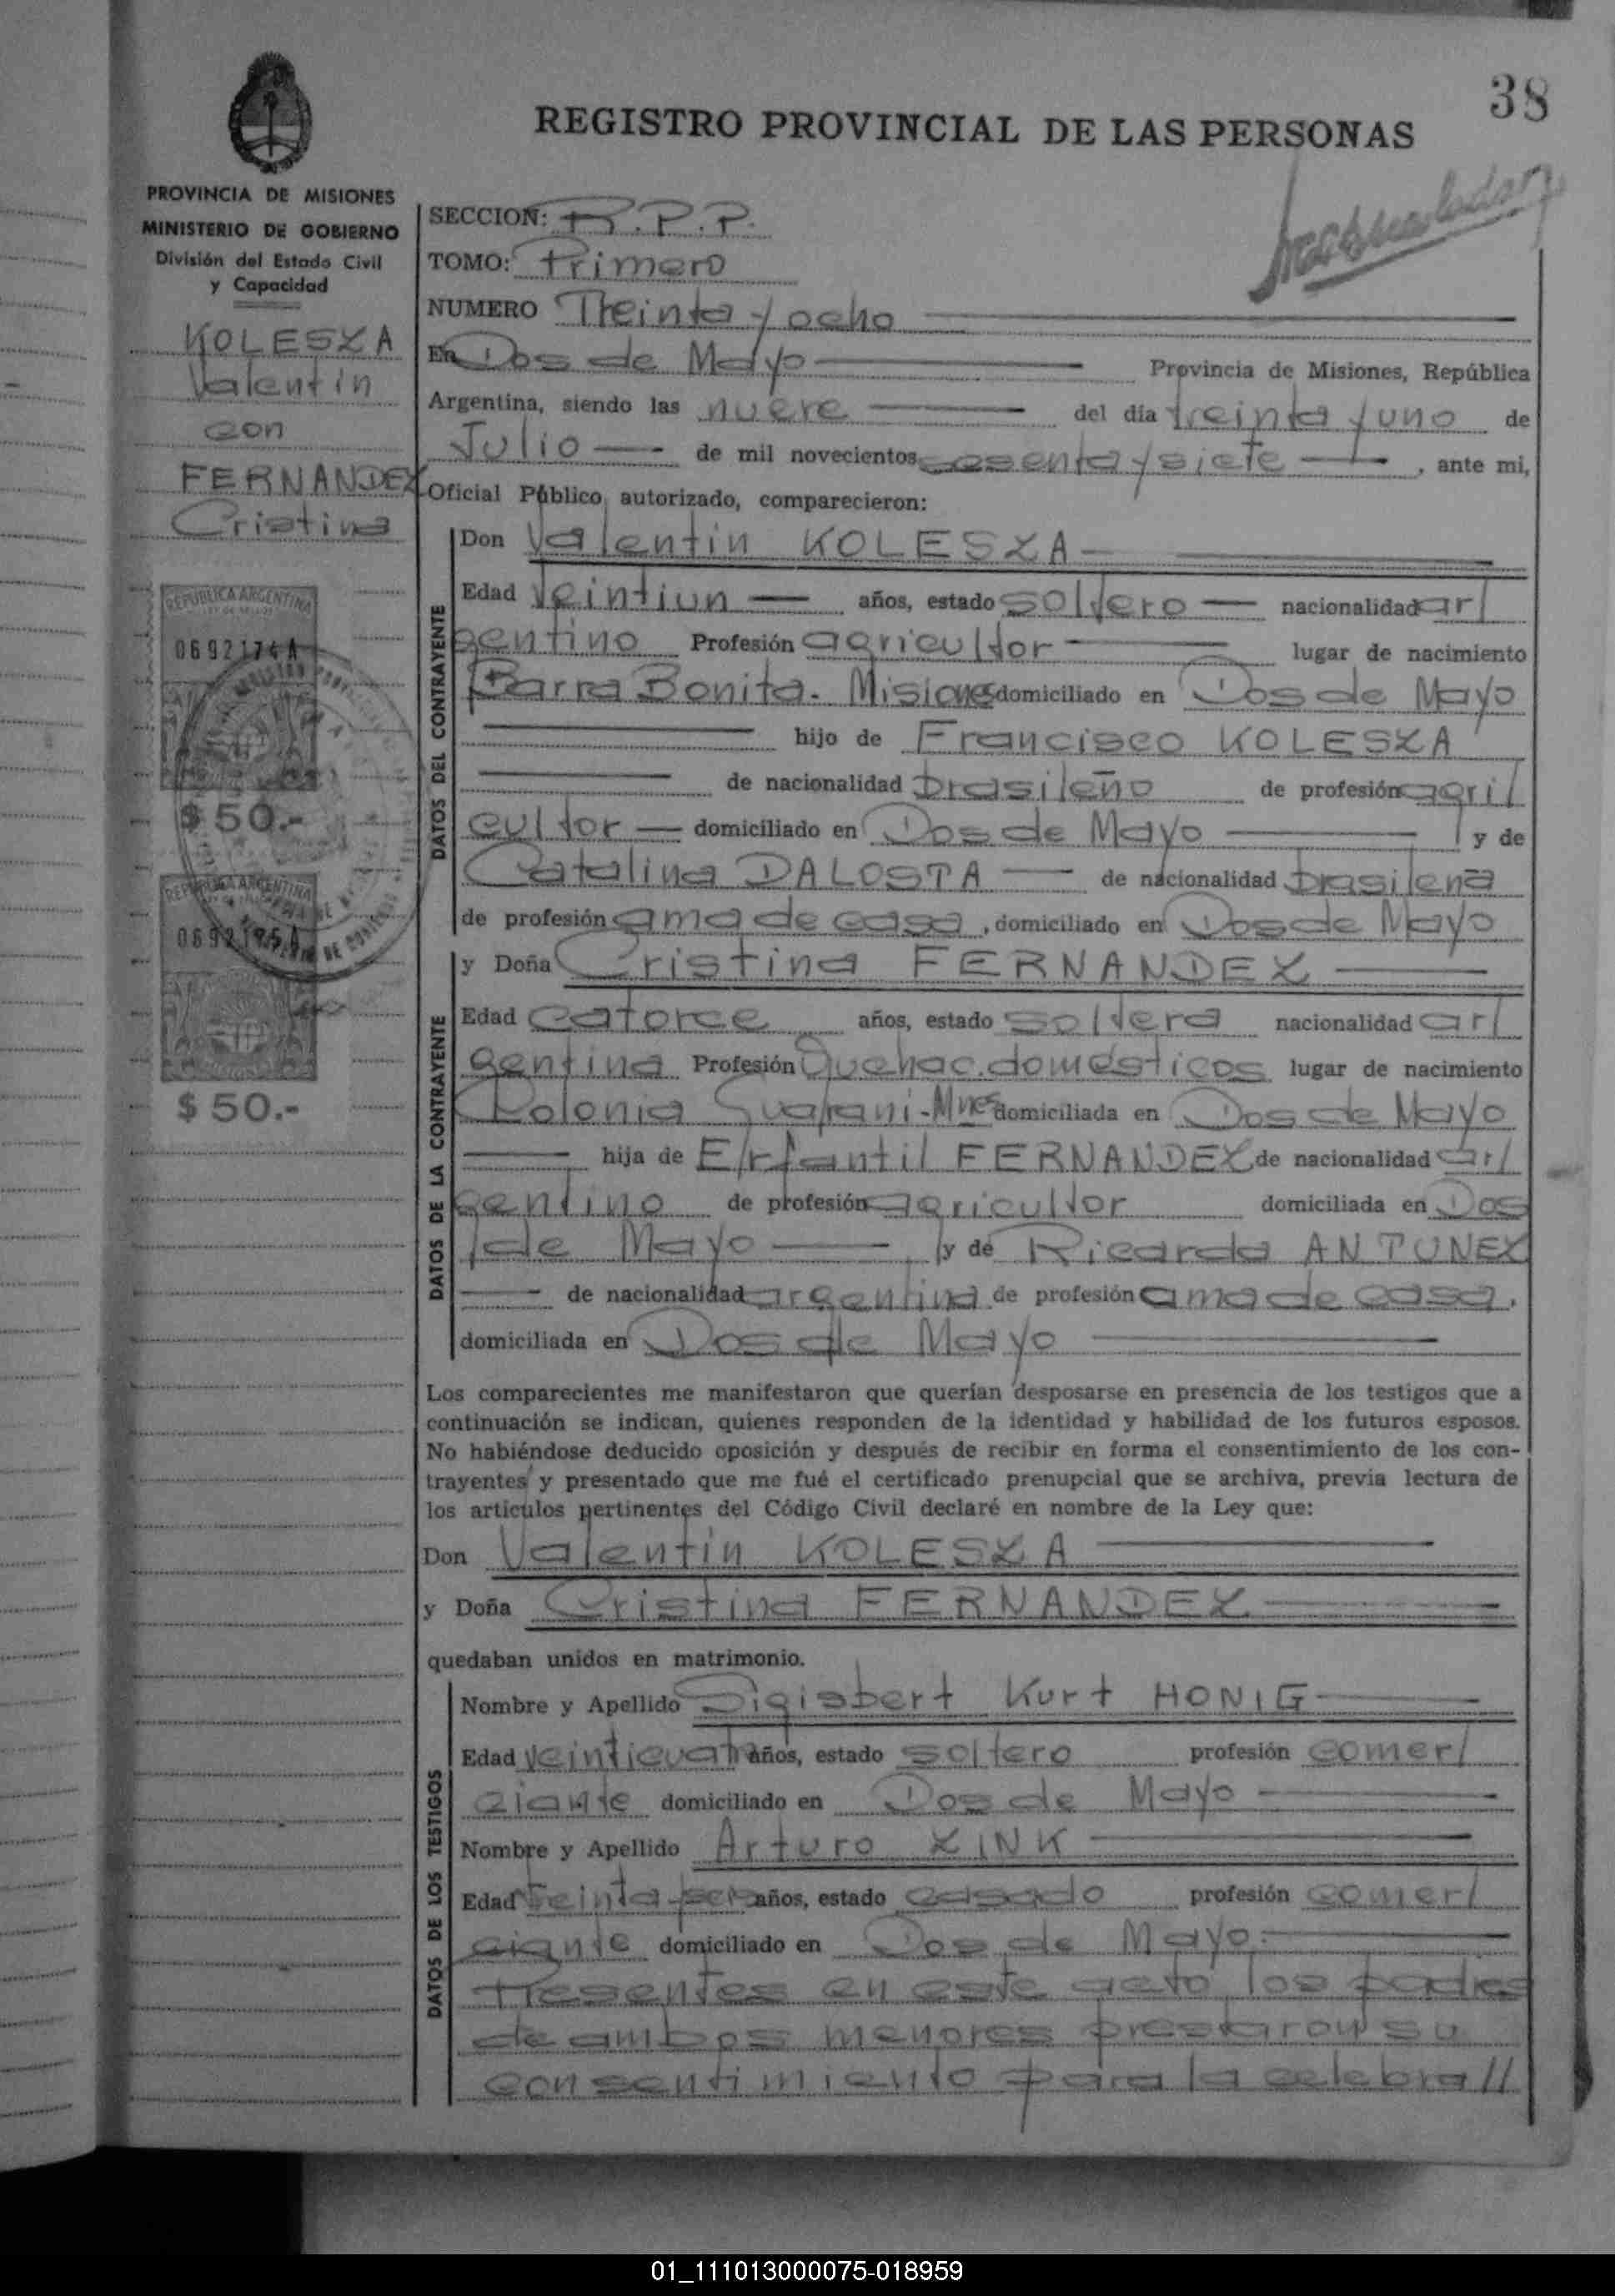 38
REGISTRO PROVINCIAL DE LAS PERSONAS
PROVINCIA DE MISIONES
MINISTERIO DE GOBIERNO
División del Estado Civil
y Capacidad
KOLESZA
Valentín
con
FERNANDEZ
Cristina
REPUBLICA ARGENTINA
0692174A
$ 50.-
REPUBLICA ARGENTINA
$ 50.-
SECCION: R.P.P.
TOMO: Primero
NUMERO Treinta y ocho
En Dos de Mayo Provincia de Misiones, República
Argentina, siendo las nueve del día treinta y uno de
Julio de mil novecientos sesenta y siete, ante mi,
Oficial Público autorizado, comparecieron:
DATOS DEL CONTRAYENTE
Don Valentín KOLESZA
Edad Veintiun años, estado soltero nacionalidad ar/
gentino Profesión agricultor lugar de nacimiento
Barra Bonita. Misiones domiciliado en Dos de Mayo
hijo de Francisco KOLESZA
de nacionalidad brasileño de profesión agri/
cultor domiciliado en Dos de Mayo y de
Catalina DALOSTA de nacionalidad brasileña
de profesión ama de casa, domiciliado en Dos de Mayo
DATOS DE LA CONTRAYENTE
y Doña Cristina FERNANDEZ
Edad catorce años, estado soltera nacionalidad ar/
gentina Profesión Quehac. domésticos lugar de nacimiento
Colonia Guaraní-Mnes domiciliada en Dos de Mayo
hija de FERNANDEZ de nacionalidad ar/
gentino de profesión agricultor domiciliada en Dos
/de Mayo y de Ricarda ANTUNEZ
de nacionalidad argentina de profesión ama de casa,
domiciliada en Dos de Mayo
Los comparecientes me manifestaron que querían desposarse en presencia de los testigos que a
continuación se indican, quienes responden de la identidad y habilidad de los futuros esposos.
No habiéndose deducido oposición y después de recibir en forma el consentimiento de los con-
trayentes y presentado que me fué el certificado prenupcial que se archiva, previa lectura de
los artículos pertinentes del Código Civil declaré en nombre de la Ley que:
Don Valentín KOLESZA
y Doña Cristina FERNANDEZ
quedaban unidos en matrimonio.
DATOS DE LOS TESTIGOS
Nombre y Apellido Sigisbert Kurt HONIG
Edad veinticuatro años, estado soltero profesión comer/
ciante domiciliado en Dos de Mayo
Nombre y Apellido Arturo ZINK
Edad treinta años, estado casado profesión comer/
ciante domiciliado en Dos de Mayo.
Presentes en este acto los padres
de ambos menores prestaron su
consentimiento para la celebra//
01_111013000075-018959